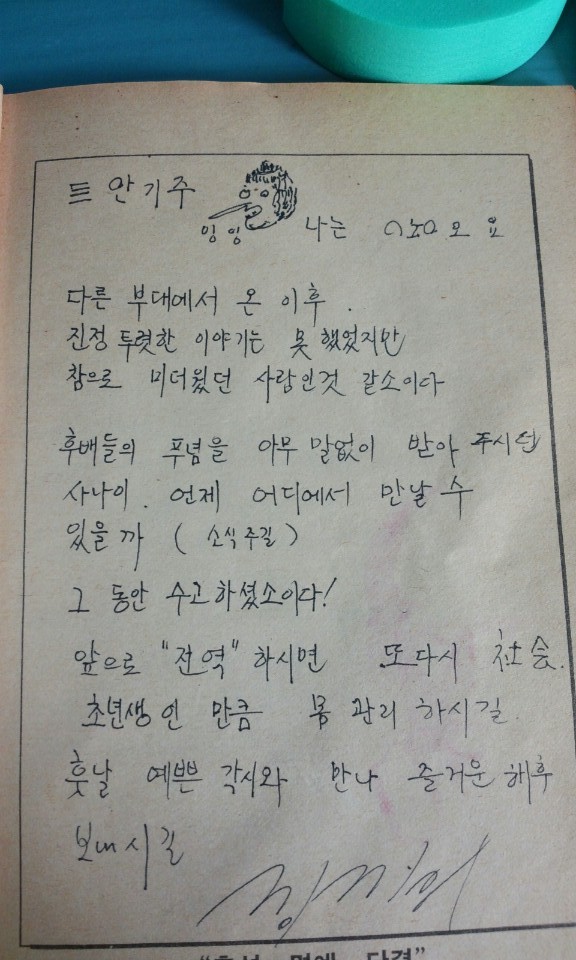 안기주
잉 잉 나는 요
다른 부대에서 온 이후.
진정 투렷한 이야기는 못 했었지만
참으로 미더웠던 사람인것 같소이다
후배들의 푸념을 아무 말없이 받아 주시던
사나이. 언제 어디에서 만날 수
있을까 ( 소식주길 )
그 동안 수고하셨소이다!
앞으로 "전역" 하시면 또다시 社会.
초년생인 만큼 몸 관리 하시길.
훗날 예쁜 각시와 만나 즐거운 해후
보내시길